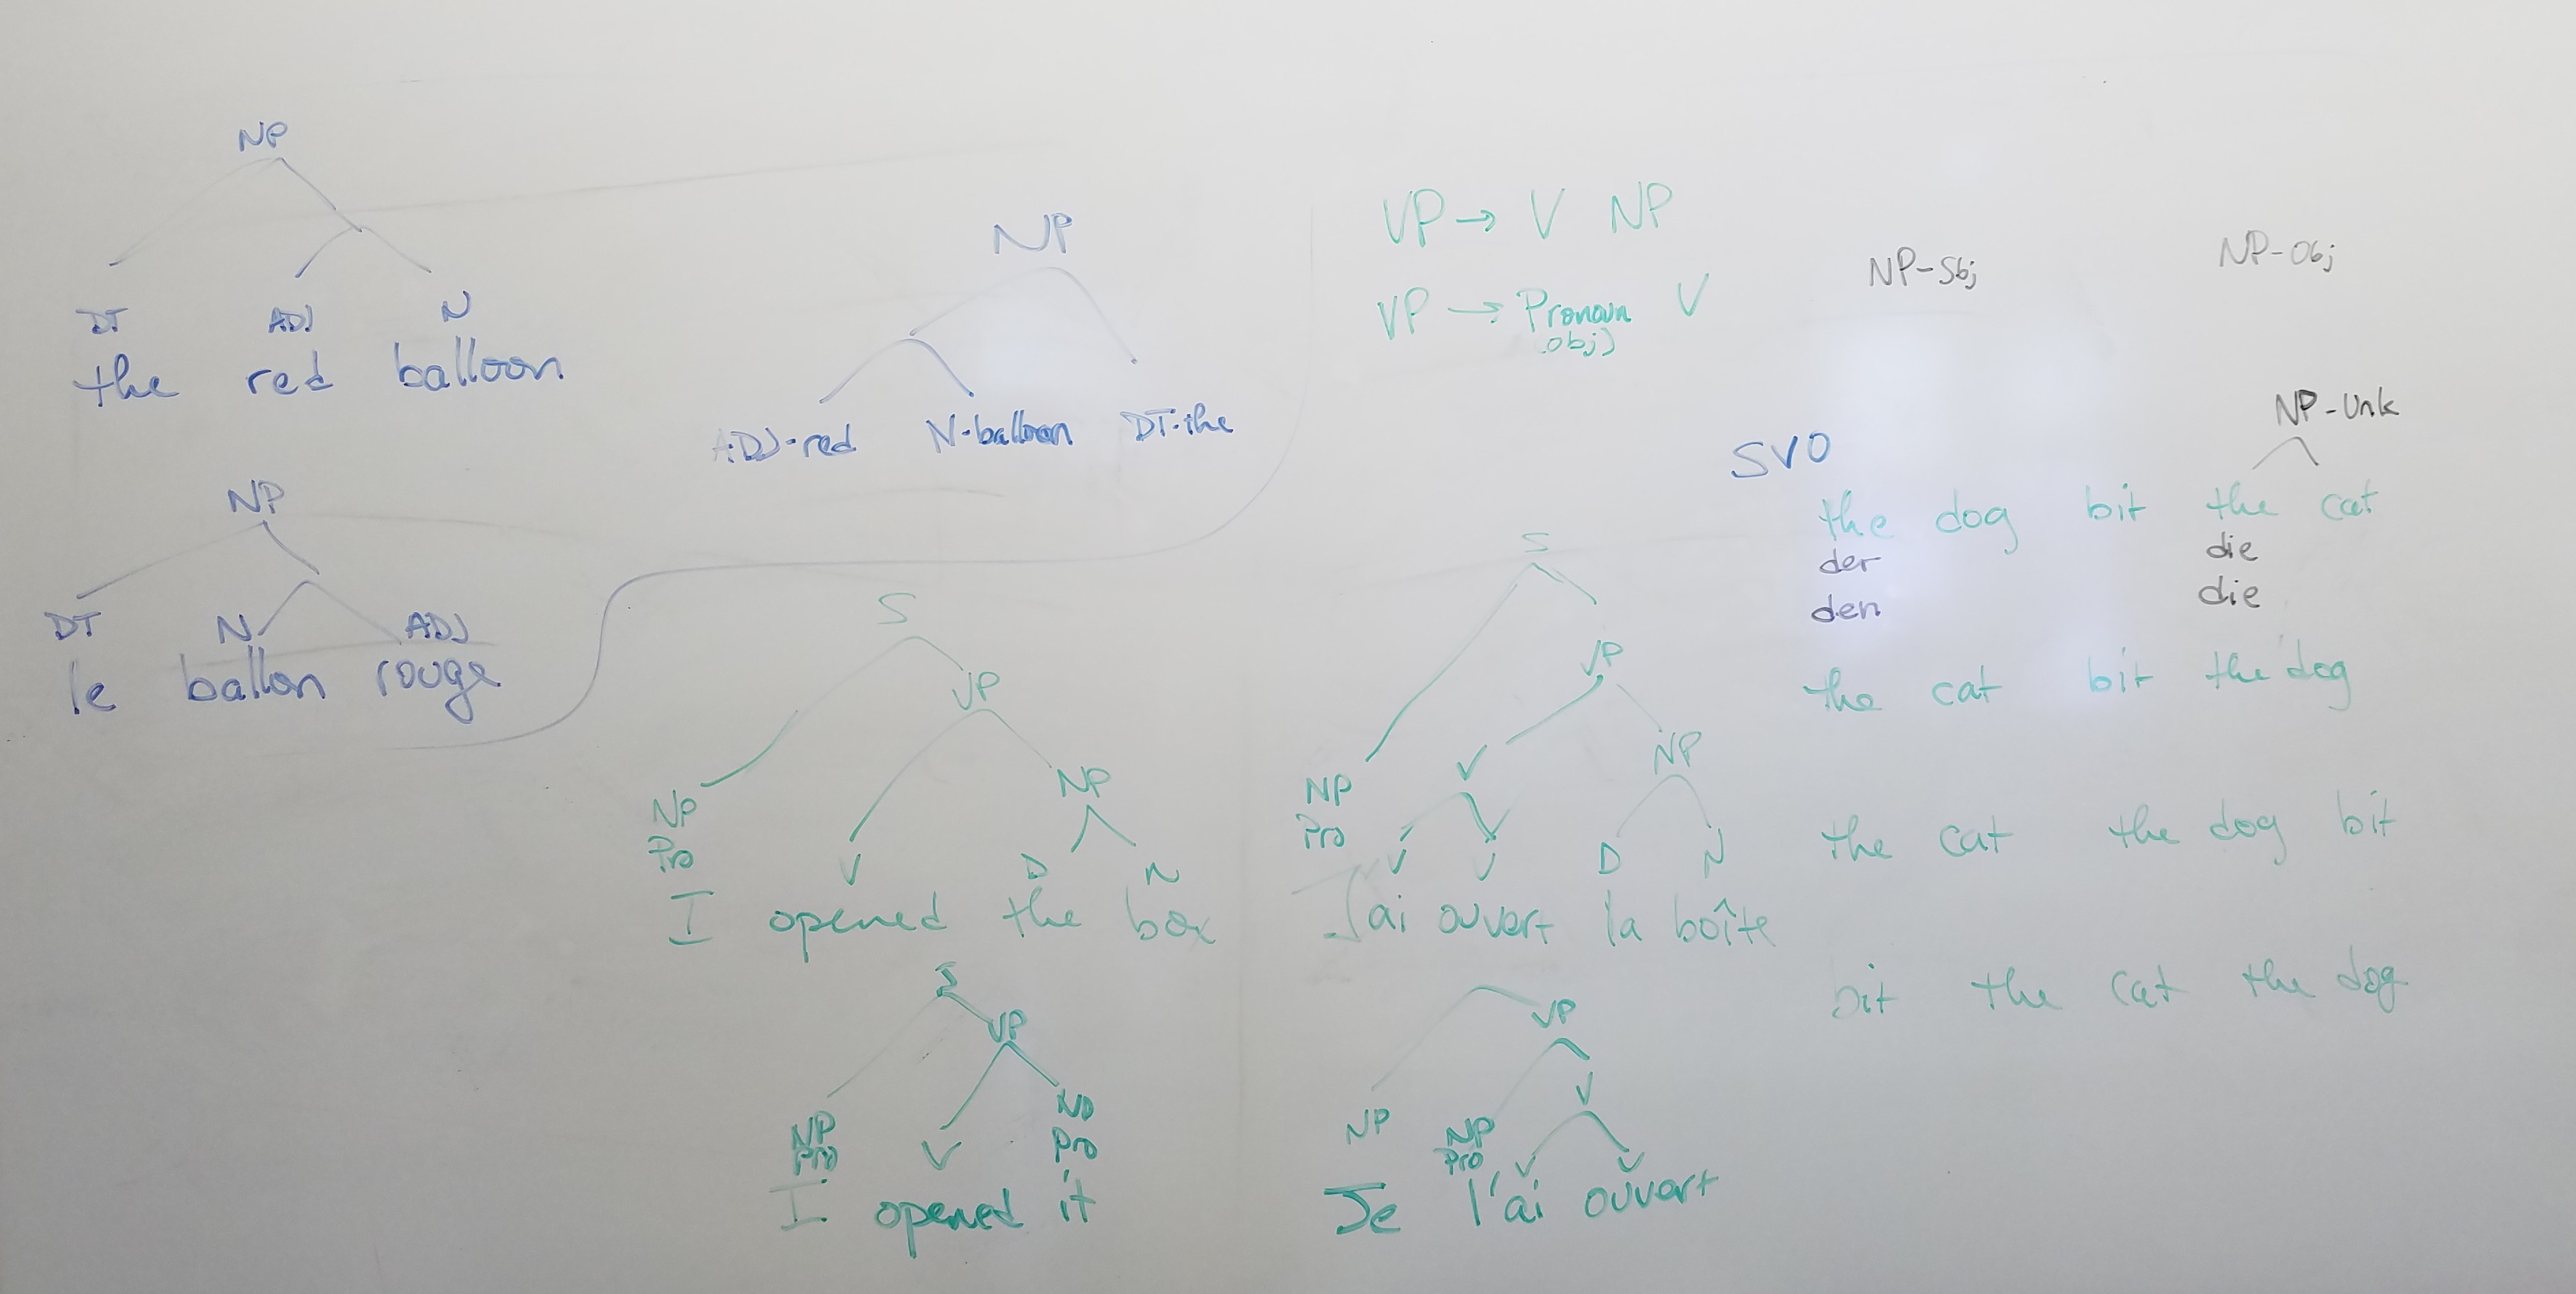 NP
DT ADJ N
the red balloon
NP
ADJ-red N-balloon DT-the
NP
DT N ADJ
le ballon rouge
S
VP
NP NP
Pro
V D N
I opened the box
S
VP
NP NP
Pro V Pro
I opened it
VP → V NP
VP → Pronoun V
obj)
S
VP
V NP
NP
Pro
V V D N
J'ai ouvert la boîte
VP
V
NP NP
Pro V V
Je l'ai ouvert
NP-Sbj NP-Obj
NP-Unk
SVO
the dog bit the cat
der die
den die
the cat bit the dog
the cat the dog bit
bit the cat the dog